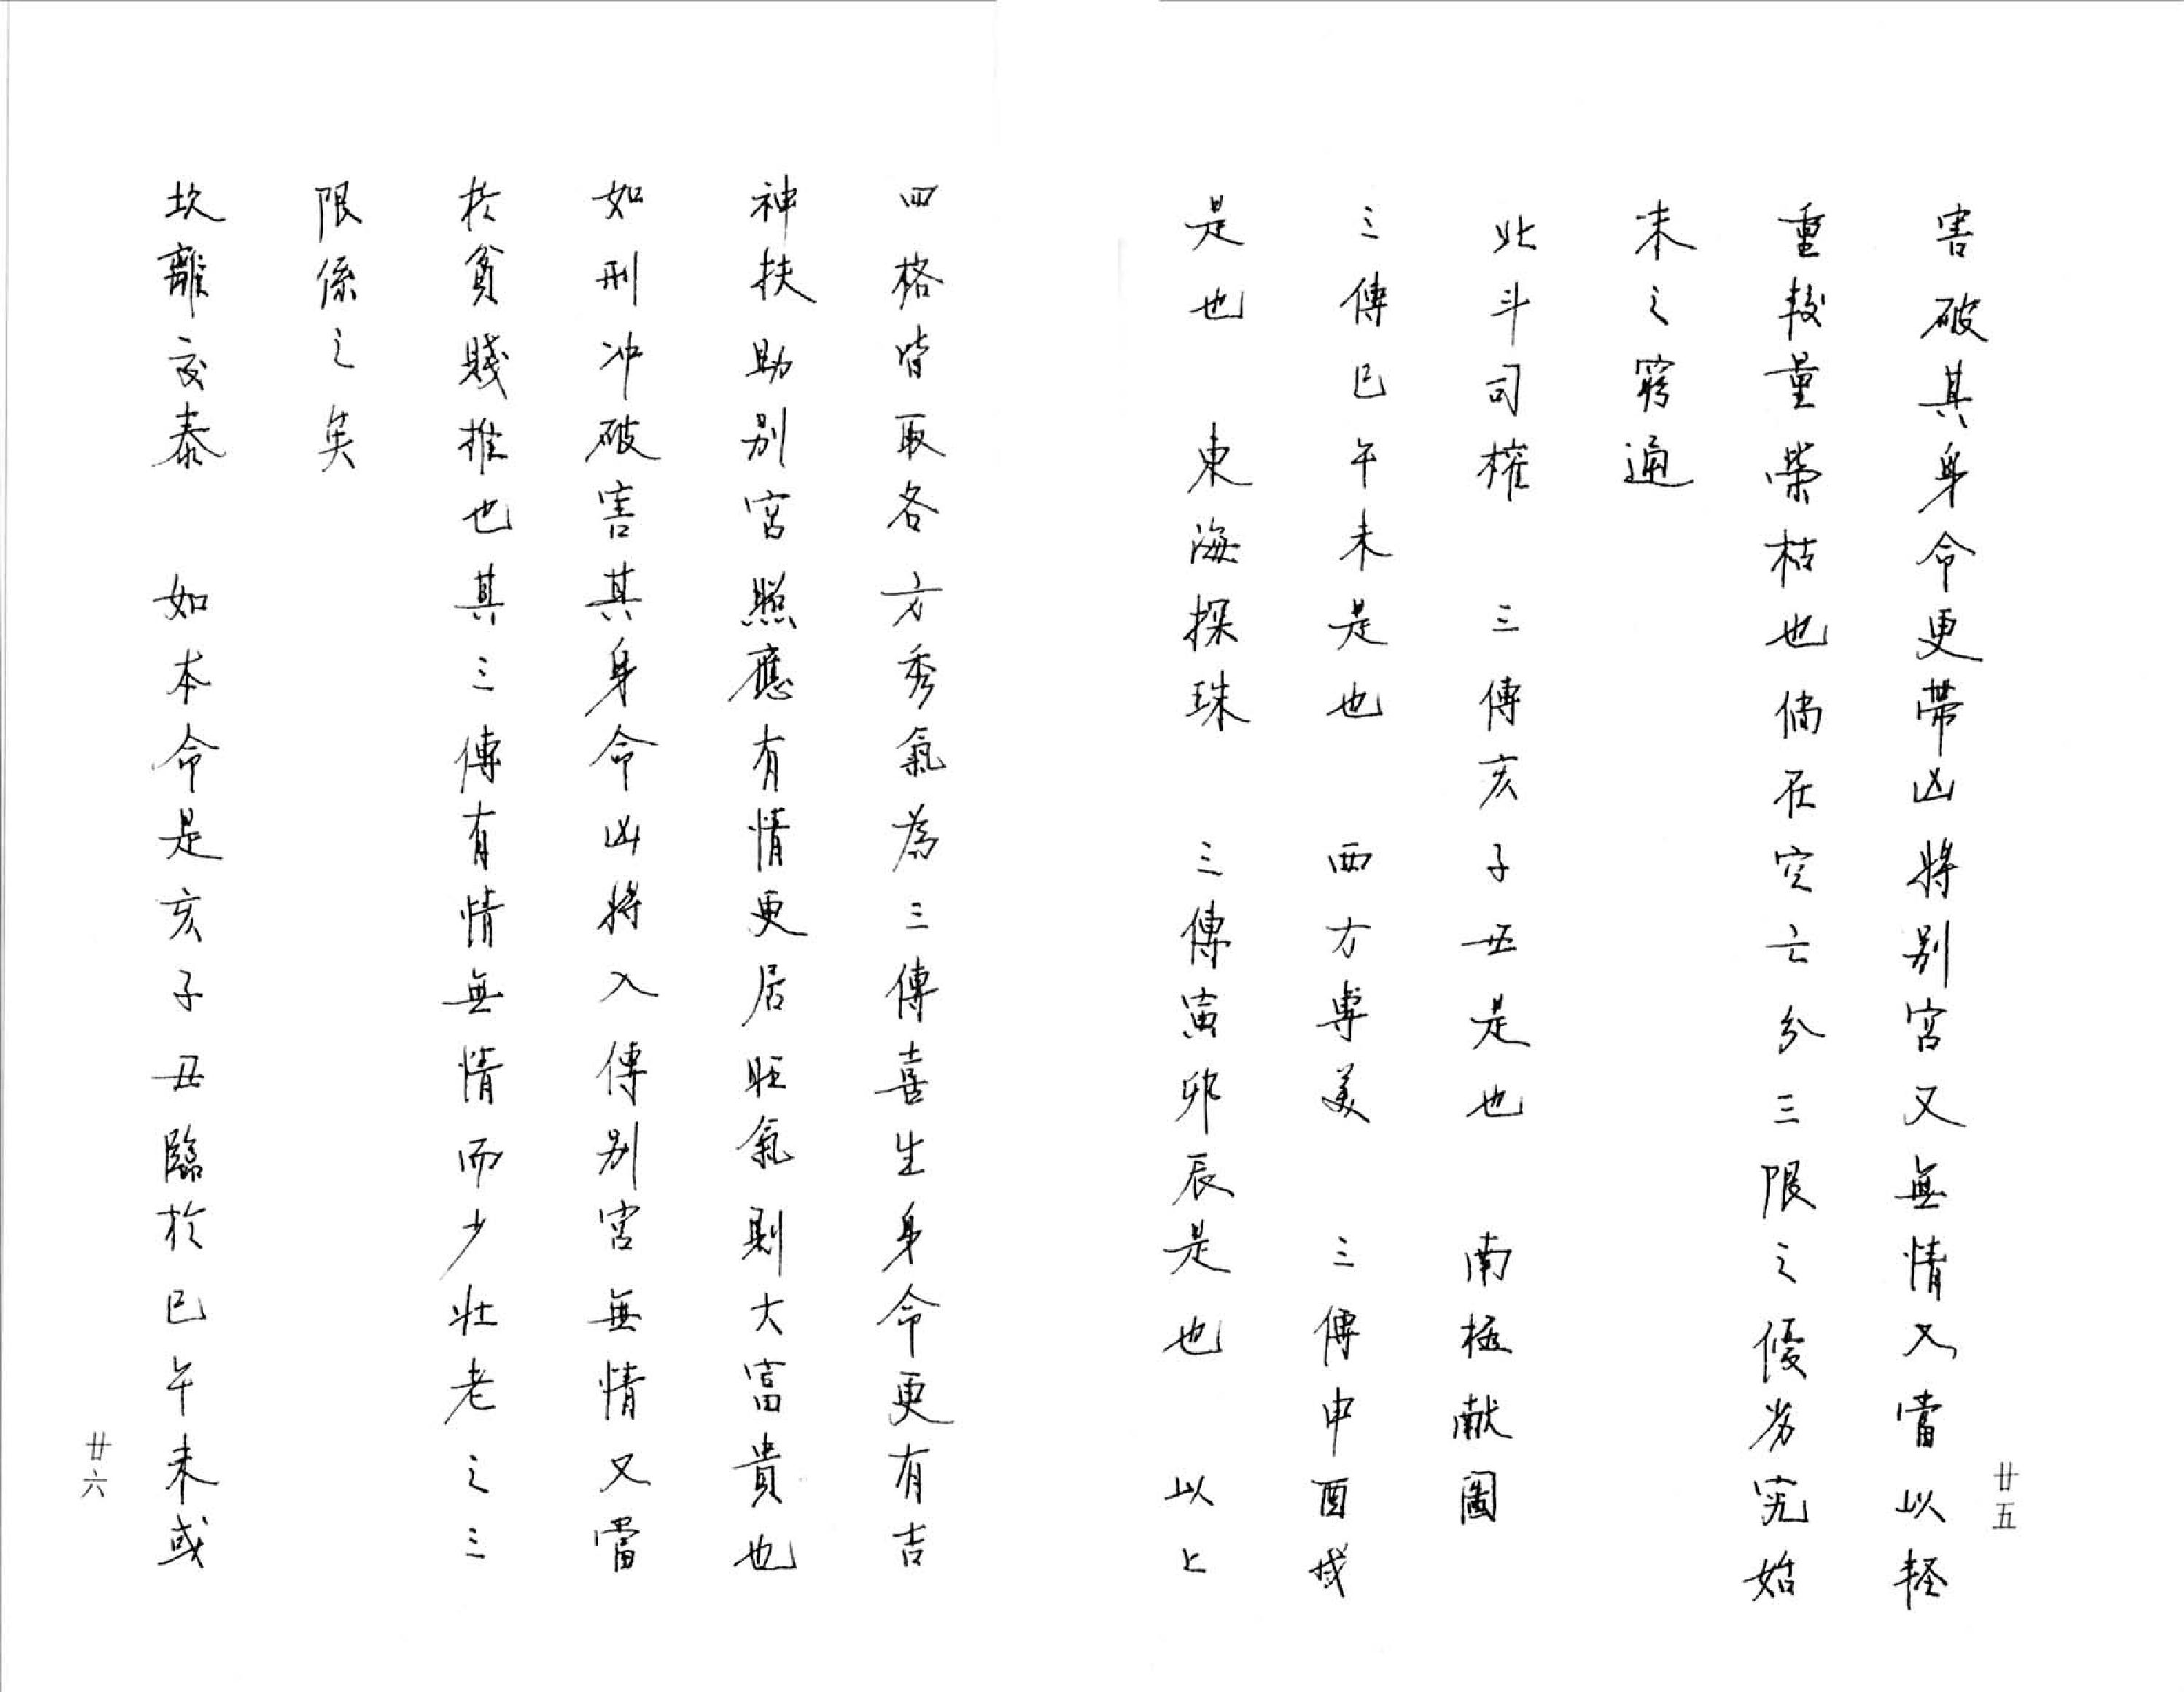 害破其身命更帶凶將别宫又無情又當以轻
重較量榮枯也倘在空亡分三限之優劣究始
末之窮通
北斗司權 三傳亥子丑是也 南極献圖
三傳巳午未是也 西方專美 三傳申酉戌
是也 東海探珠 三傳寅卯辰是也 以上
廿五
四格皆取各方秀氣為三傳喜生身命更有吉
神扶助别宫照應有情更居旺氣則大富貴也
如刑冲破害其身命凶將入傳别宫無情又當
於貧賤推也其三傳有情無情而少壯老之三
限係之矣
坎離交泰 如本命是亥子丑臨於巳午未或
廿六